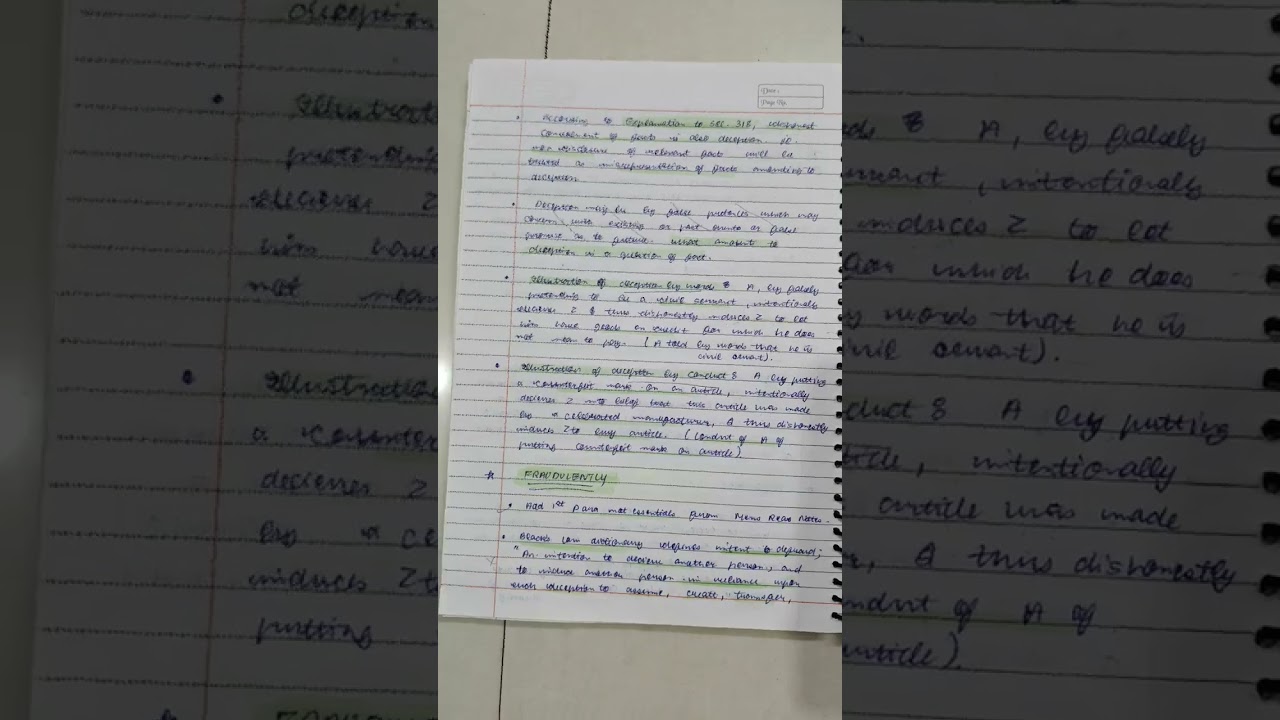 Date :
Page No.
According to Explanation to Sec. 318, dishonest
concealment of facts is also deception ie.
non disclosure of relevant facts will be
treated as misrepresentation of facts amounting to
deception
Deception may be by false pretences which may
concern with existing or past events or false
promise as to future. What amount to
deception is a question of fact.
Illustration of deception by words : A, by falsely
pretending to be a civil servant, intentionally
deceives Z & thus dishonestly induces Z to let
him have goods on credit for which he does
not mean to pay. (A told by words that he is
civil servant).
Illustration of deception by Conduct : A by putting
a counterfeit mark on an article, intentionally
deceives Z into belief that this article was made
by a celebrated manufacturer, A thus dishonestly
induces Z to buy article. (Conduct of A of
putting counterfeit mark on article)
FRAUDULENTLY
Add 1st para not essentials from Mens Rea Notes.
Black's law dictionary defines intent to defraud;
"An intention to deceive another person, and
to induce another person in reliance upon
such deception to assume, create, transfer,